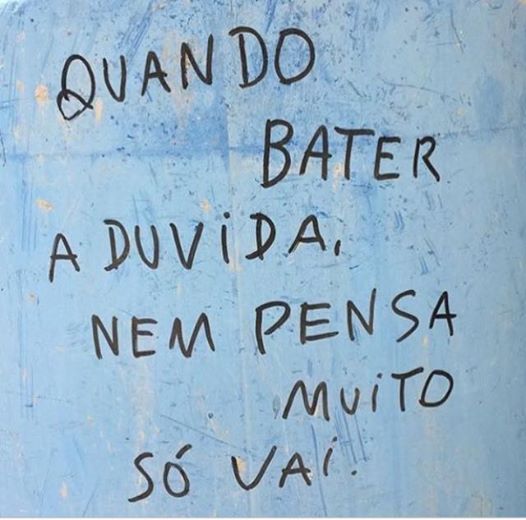 QUANDO
BATER
A DUViDA,
NEM PENSA
MUiTO
SÓ VAi.